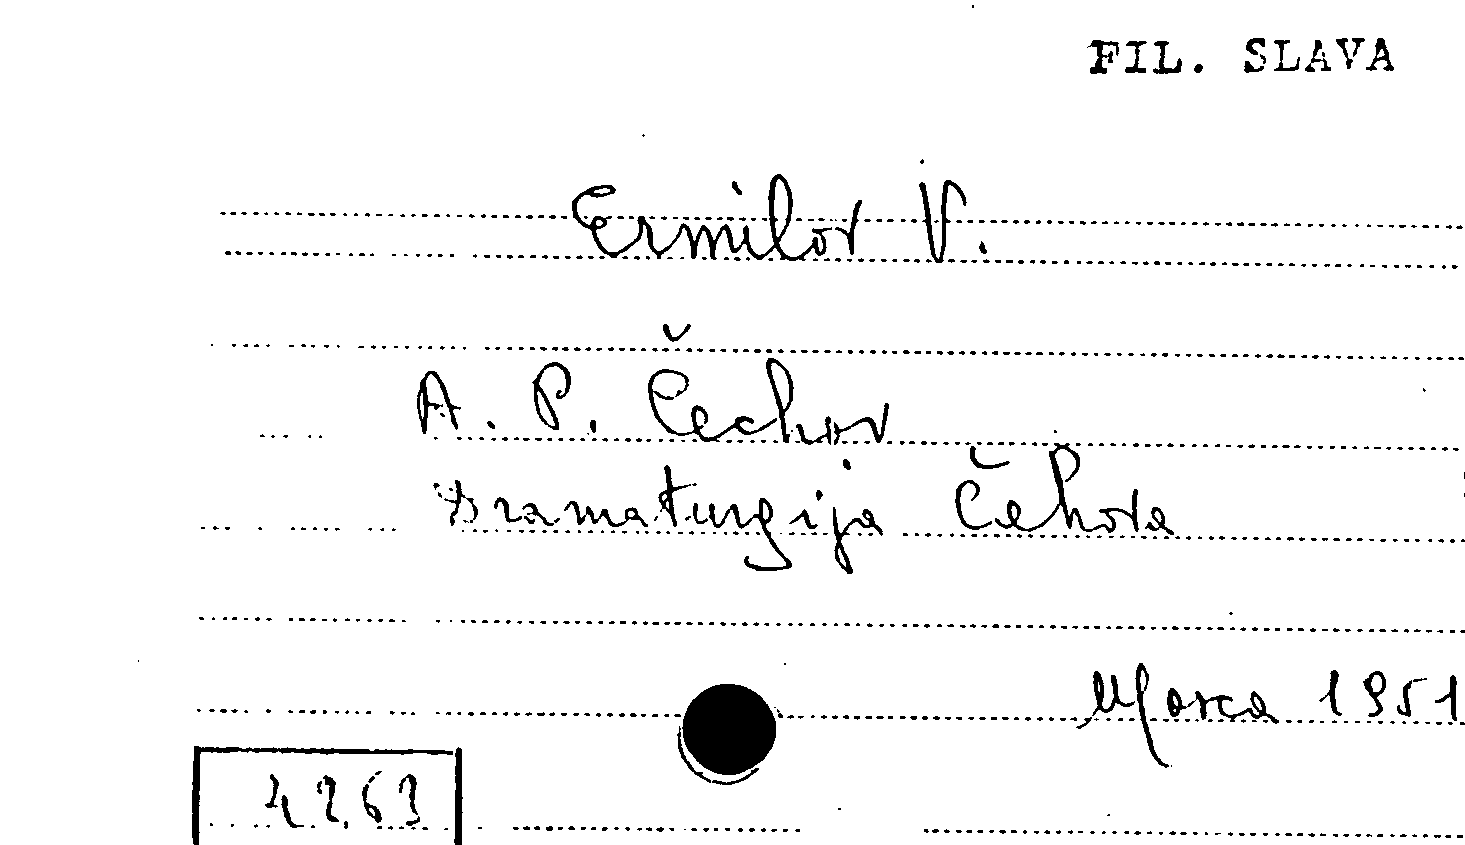 FIL. SLAVA
Ermilov V.
A. P. Čechov
Dramaturgija Čehova
Mosca 1951
4263